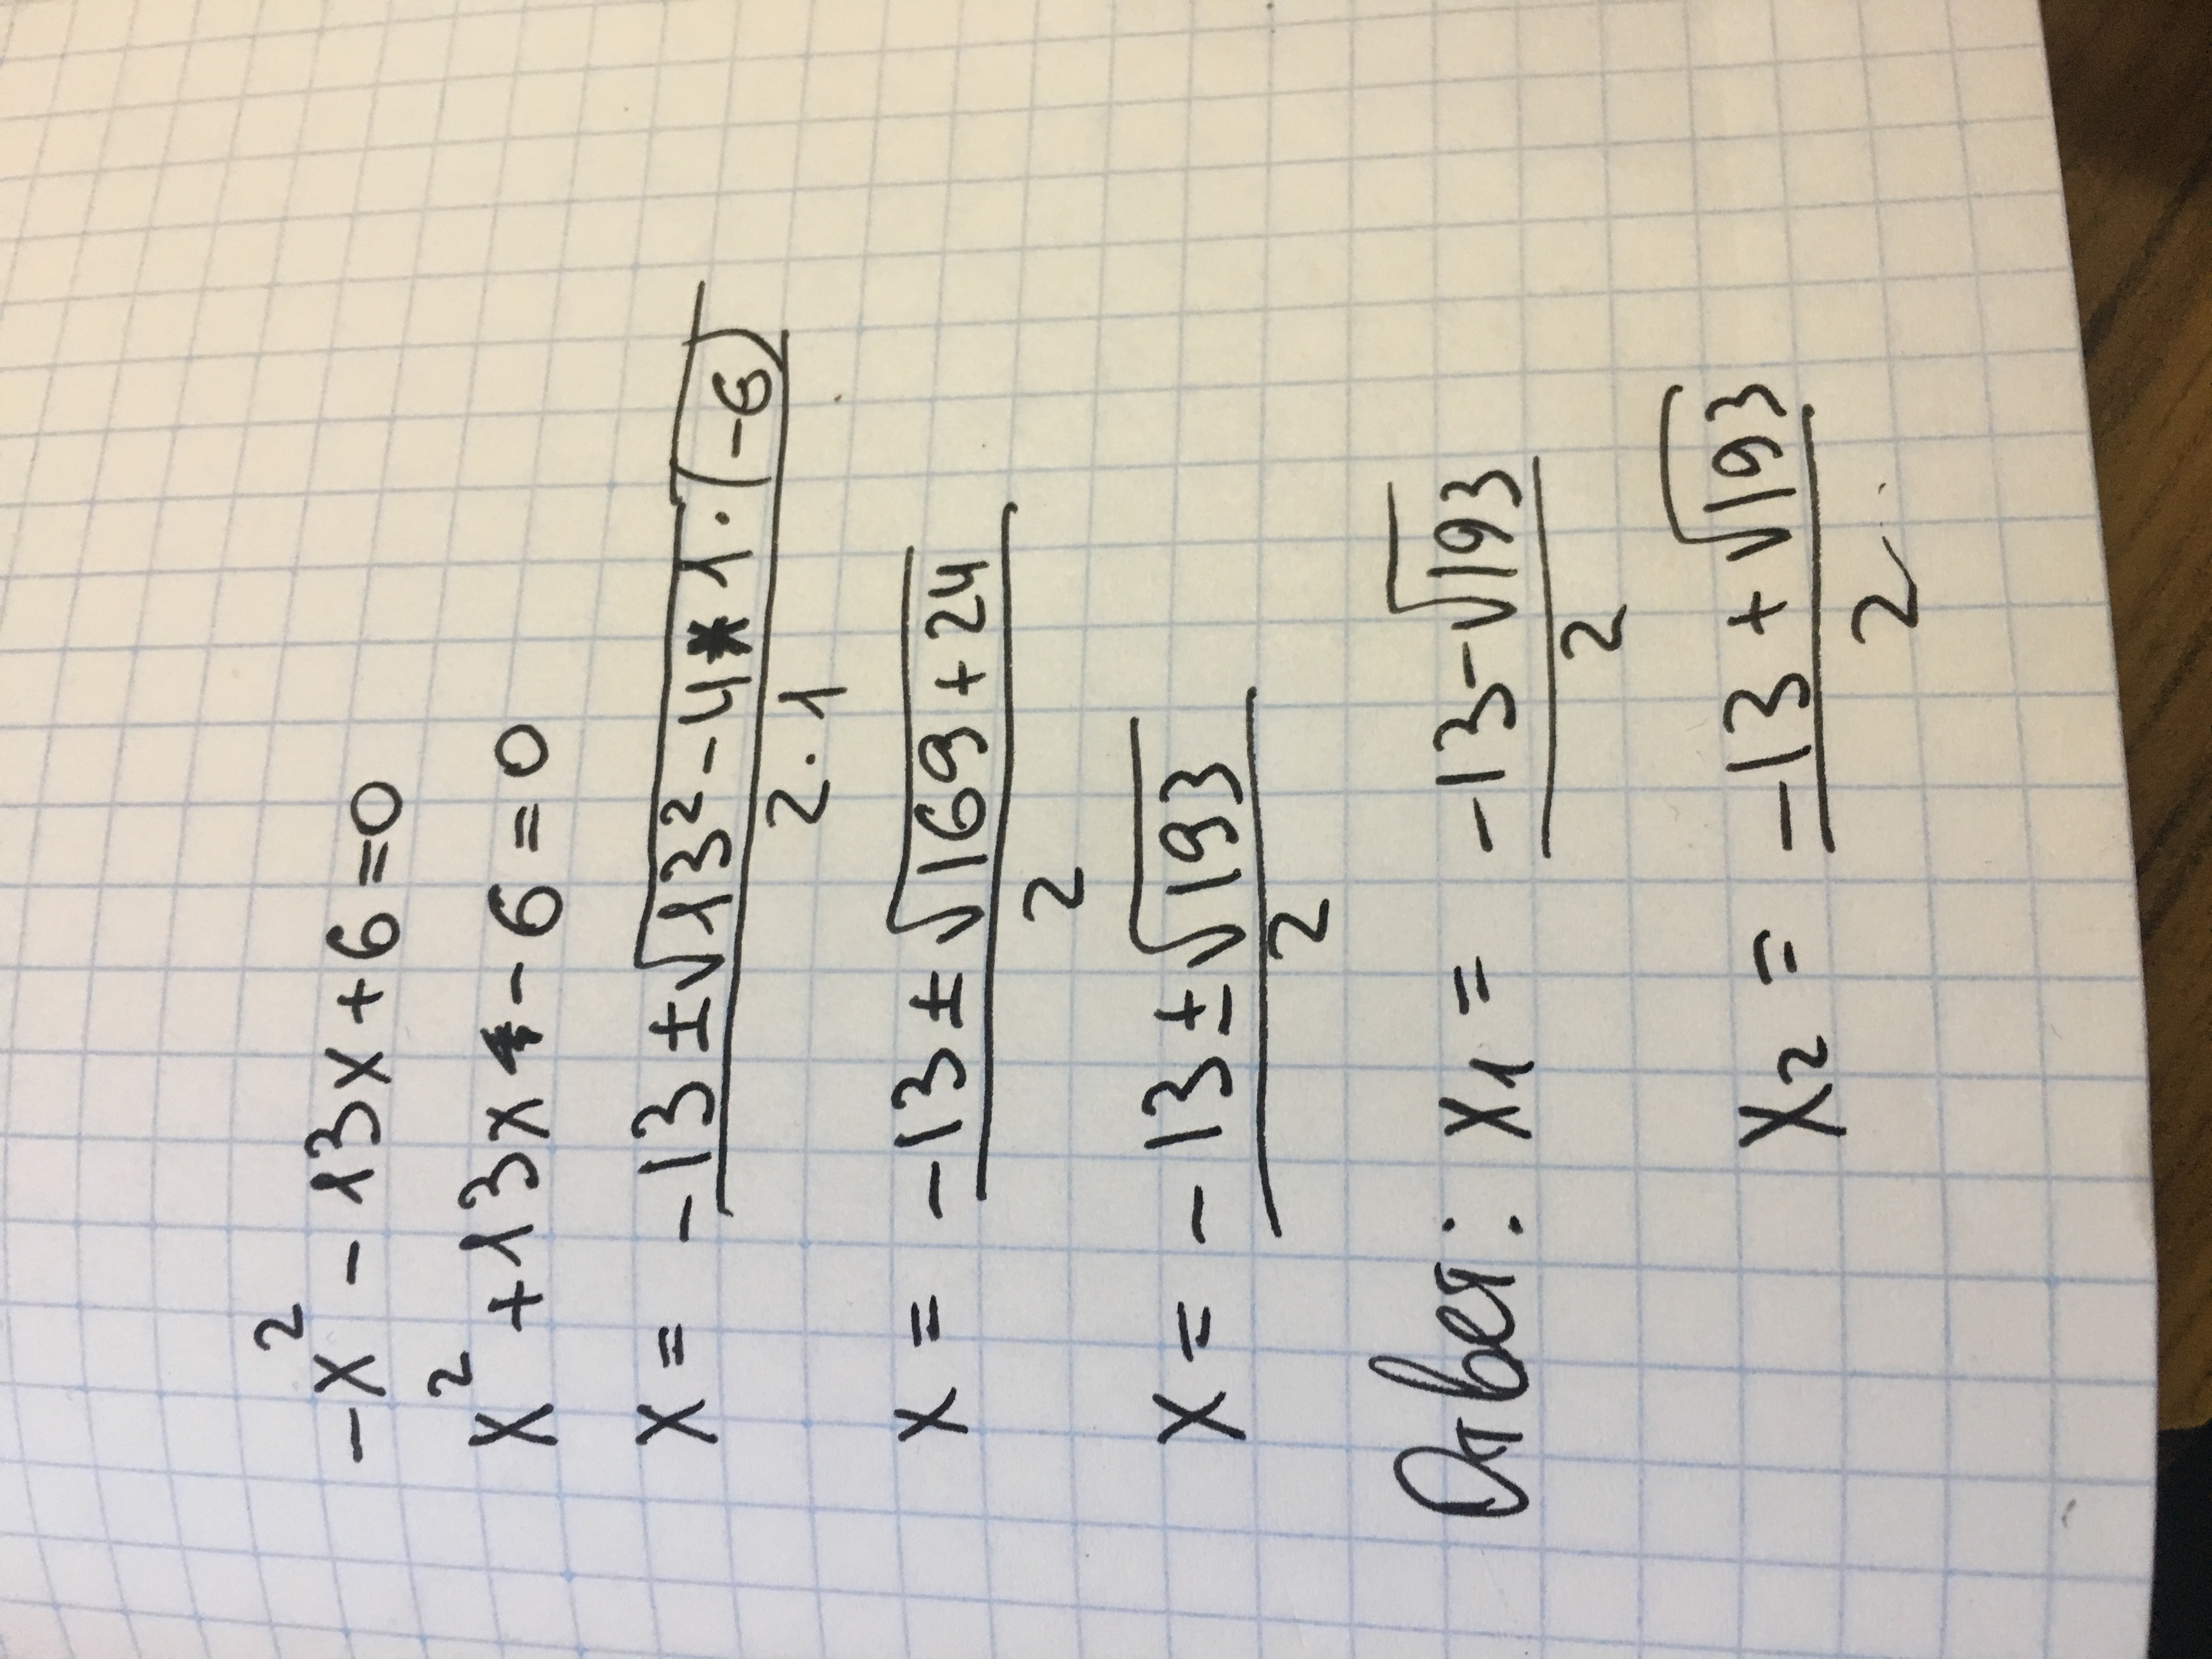 -x² - 13x + 6 = 0
x² + 13x - 6 = 0
x = (-13 ± √(13² - 4 * 1 · (-6))) / (2 · 1)
x = (-13 ± √(169 + 24)) / 2
x = (-13 ± √193) / 2
Ответ: x₁ = (-13 - √193) / 2
x₂ = (-13 + √193) / 2